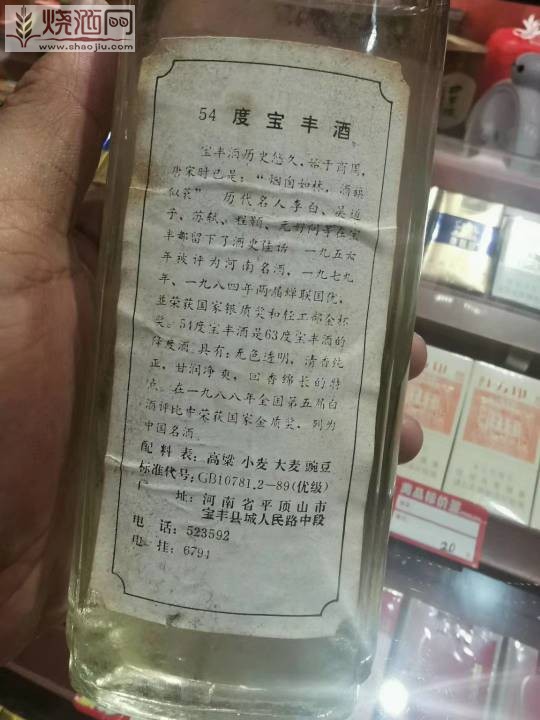 烧酒网
www.shaojiu.com
54 度宝丰酒
宝丰酒历史悠久,始于商周,
唐宋时已是:“烟囱如林,酒旗
似花” 历代名人李白、吴道
子、苏轼、程颢、元好问等在宝
丰都留下了酒史佳话 一九五六
年被评为河南名酒,一九七九
年、一九八四年两届蝉联国优,
并荣获国家银质奖和轻工部金杯
奖。54度宝丰酒是63度宝丰酒的
降度酒 具有:无色透明,清香纯
正,甘润净爽,回香绵长的特
点。在一九八八年全国第五届白
酒评比中荣获国家金质奖,列为
中国名酒。
配料表:高粱 小麦 大麦 豌豆
标准代号:GB10781.2-89(优级)
厂 址:河南省平顶山市
宝丰县城人民路中段
电 话:523592
电 挂:6794
商品标价签
20